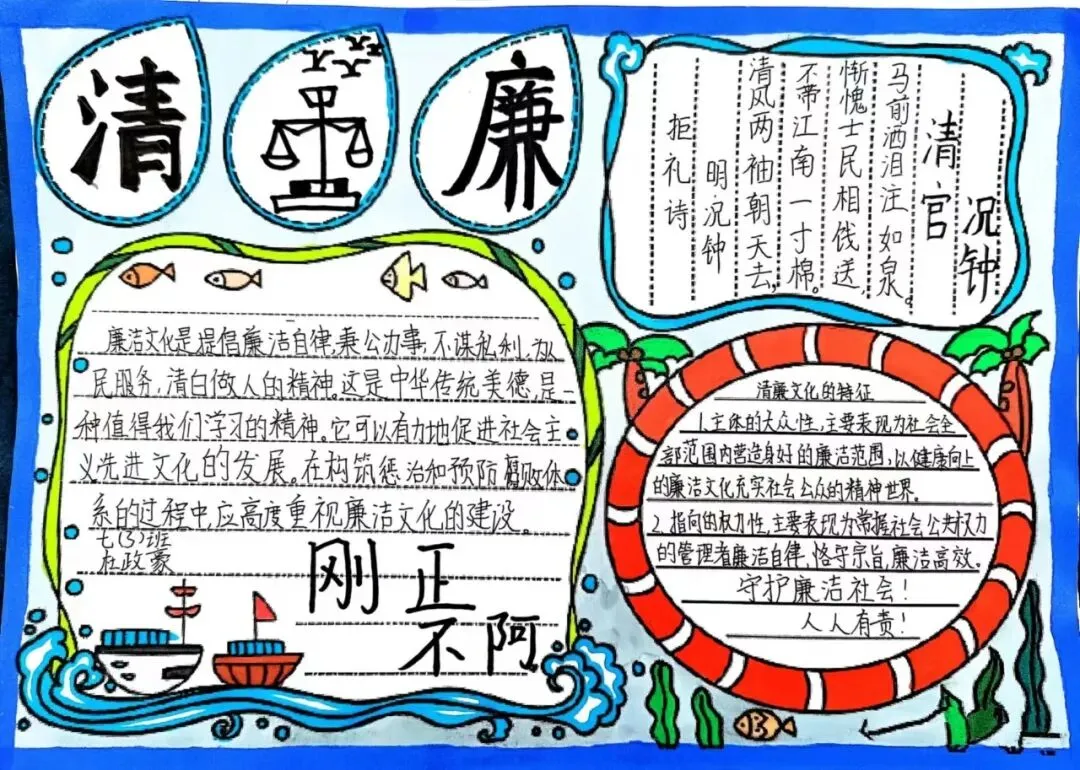 清廉
廉洁文化是提倡廉洁自律,秉公办事,不谋私利,为人
民服务,清白做人的精神。这是中华传统美德,是一
种值得我们学习的精神。它可以有力地促进社会主
义先进文化的发展。在构筑惩治和预防腐败体
系的过程中,应高度重视廉洁文化的建设。
七(3)班
杜政豪
刚正
不阿
拒礼诗
明.况钟
清风两袖朝天去,
不带江南一寸棉。
惭愧士民相饯送,
马前洒泪注如泉。
清官
况钟
清廉文化的特征
1.主体的大众性,主要表现为社会全
部范围内营造身好的廉洁范围,以健康向上
的廉洁文化充实社会公众的精神世界。
2.指向的权力性,主要表现为掌握社会公共权力
的管理者廉洁自律,恪守宗旨,廉洁高效。
守护廉洁社会!
人人有责!
13